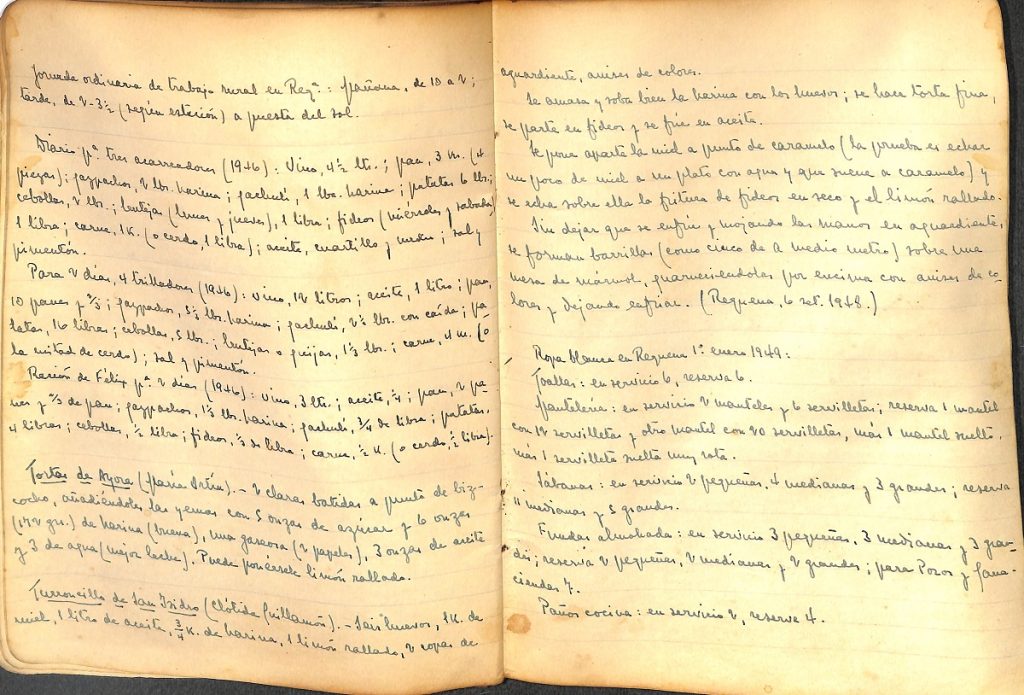 Jornada ordinaria de trabajo rural en Reqª.: Mañana, de 10 a 2;
tarde, de 2-3½ (según estación) a puesta del sol.
Diario pª. tres acarreadores (1946): Vino, 4½ lt.; pan, 3 K. (4
piezas); gazpachos, 2 lbs. harina; gachulí, 1 lbs. harina; patatas 6 lbs.;
cebollas, 2 lbs.; lentejas (lunes y jueves), 1 libra; fideos (miércoles y sábado)
1 libra; carne, 1 K. (o cerdo, 1 libra); aceite, cuartillo y medio; sal y
pimentón.
Para 2 días, 4 trilladores (1946): Vino, 12 litros; aceite, 1 litro; pan,
10 panes y ⅔; gazpachos, 5½ lbs. harina; gachulí, 2½ lbs. con caída; pa-
tatas, 16 libras; cebollas, 5 lbs.; lentejas o guijas, 1⅓ lbs.; carne, 4 K. (o
la mitad de cerdo); sal y pimentón.
Ración de Félix pª. 2 días (1946): vino, 3 lts.; aceite, ¼; pan, 2 pa-
nes y ⅔ de pan; gazpachos, 1½ lbs. harina; gachulí, ¾ de libra; patatas,
4 libras; cebollas, ½ libra; fideos, ⅓ de libra; carne, ½ K. (o cerdo, ½ libra).
Tortas de Ayora (María). - 2 claras batidas a punto de biz-
cocho, añadiéndoles las yemas con 5 onzas de azúcar y 6 onzas
(172 grs.) de harina (buena), una gaseosa (2 papeles), 3 onzas de aceite
y 3 de agua (mejor leche). Puede ponersele limón rallado.
Turroncillo de San Isidro (Clótilde Guillamón). - Seis huevos, 1 K. de
miel, 1 litro de aceite, ¾ K. de harina, 1 limón rallado, 2 copas de
aguardiente, anises de colores.
Se amasa y soba bien la harina con los huevos; se hace torta fina,
se parte en fideos y se frie en aceite.
Se pone aparte la miel a punto de caramelo (la prueba es echar
un poco de miel a un plato con agua y que suene a caramelo) y
se echa sobre ella la fritura de fideos en seco y el limón rallado.
Sin dejar que se enfríe y mojando las manos en aguardiente,
se forman barrillas (como cinco de a medio metro) sobre una
mesa de mármol, guarneciendolas por encima con anises de co-
lores y dejando enfriar. (Requena, 6 set. 1948.)
Ropa blanca en Requena 1º. enero 1949:
Toallas: en servicio 6, reserva 6.
Mantelería: en servicio 2 manteles y 6 servilletas; reserva 1 mantel
con 12 servilletas y otro mantel con 20 servilletas, más 1 mantel suelto,
más 1 servilleta suelta muy rota.
Sábanas: en servicio 2 pequeñas, 4 medianas y 3 grandes; reserva
4 medianas y 5 grandes.
Fundas almohada: en servicio 3 pequeñas, 3 medianas y 3 gran-
des; reserva 2 pequeñas, 2 medianas y 2 grandes; para Pozos y
7.
Paños cocina: en servicio 2, reserva 4.